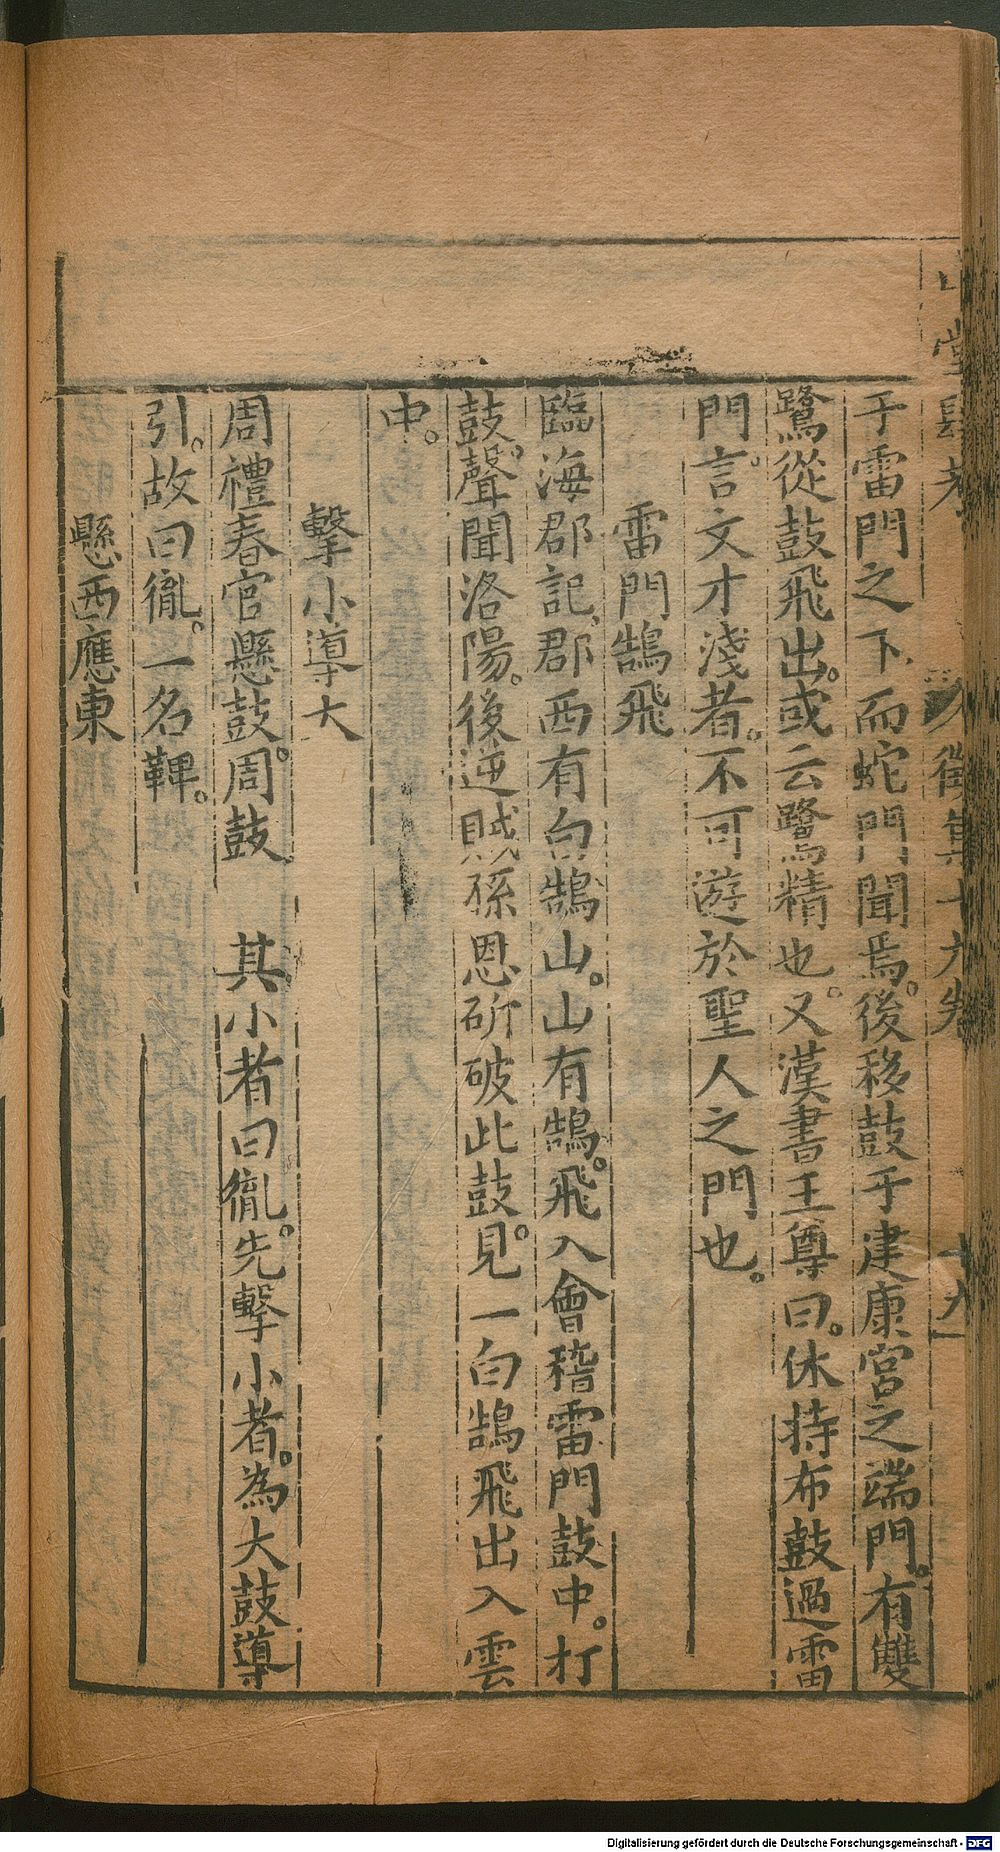 山堂肆考 徵集十六卷 十九
于雷門之下而蛇門聞焉。後移鼓于建康宮之端門。有雙
鷺從鼓飛出。或云鷺精也。又漢書王尊曰。休持布鼓過雷
門。言文才淺者。不可遊於聖人之門也。
雷門鵠飛
臨海郡記、郡西有白鵠山。山有鵠。飛入會稽雷門鼓中。打
鼓。聲聞洛陽。後逆賊孫恩斫破此鼓。見一白鵠飛出入雲
中。
擊小導大
周禮春官懸鼓。周鼓 其小者曰㣧。先擊小者。為大鼓導
引。故曰㣧。一名鞞。
懸西應東
Digitalisierung gefördert durch die Deutsche Forschungsgemeinschaft - DFG